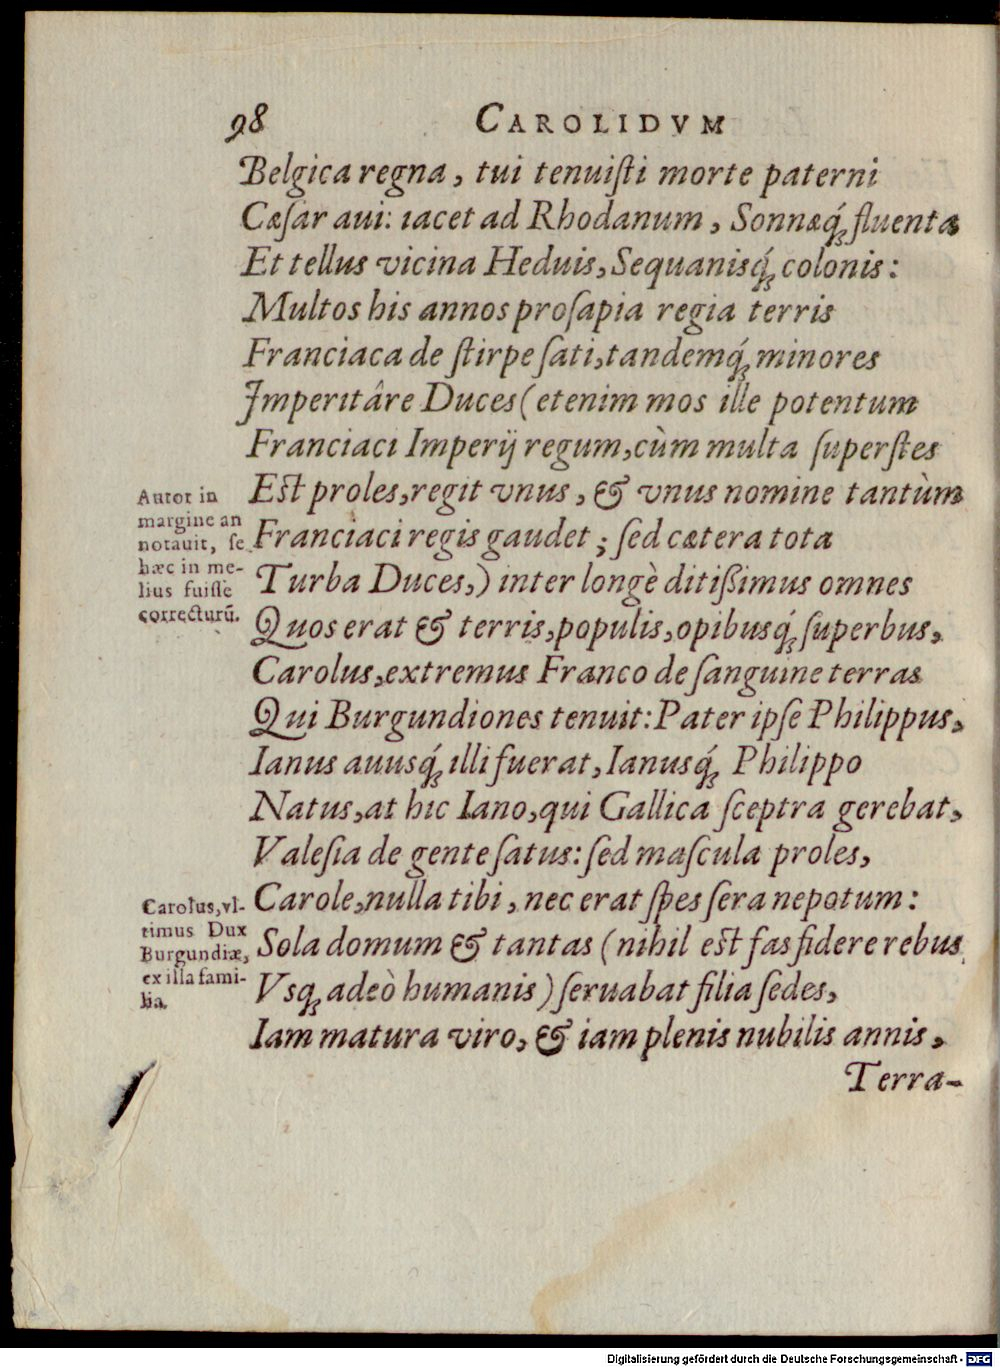 98 CAROLIDVM
Belgica regna, tui tenuiſti morte paterni
Cæſar aui: iacet ad Rhodanum, Sonnæq́ꝫ fluenta
Et tellus vicina Heduis, Sequanisq́ꝫ colonis:
Multos his annos proſapia regia terris
Franciaca de ſtirpe ſati, tandemq́ꝫ minores
Imperitâre Duces (etenim mos ille potentum
Franciaci Imperij regum, cùm multa ſuperſtes
Eſt proles, regit vnus, & vnus nomine tantùm
Franciaci regis gaudet; ſed cætera tota
Turba Duces,) inter longè ditißimus omnes
Quos erat & terris, populis, opibusq́ꝫ ſuperbus,
Carolus, extremus Franco de ſanguine terras
Qui Burgundiones tenuit: Pater ipſe Philippus,
Ianus auusq́ꝫ illi fuerat, Ianusq́ꝫ Philippo
Natus, at hic Iano, qui Gallica ſceptra gerebat,
Valeſia de gente ſatus: ſed maſcula proles,
Carole, nulla tibi, nec erat ſpes ſera nepotum:
Sola domum & tantas (nihil eſt fas fidere rebus
Vsqꝫ adeò humanis) ſeruabat filia ſedes,
Iam matura viro, & iam plenis nubilis annis,
Terra-
Autor in
margine an
notauit, ſe
hæc in me-
lius fuiſſe
correcturū.
Carolus, vl-
timus Dux
Burgundiæ,
ex illa fami-
lia.
Digitalisierung gefördert durch die Deutsche Forschungsgemeinschaft - DFG